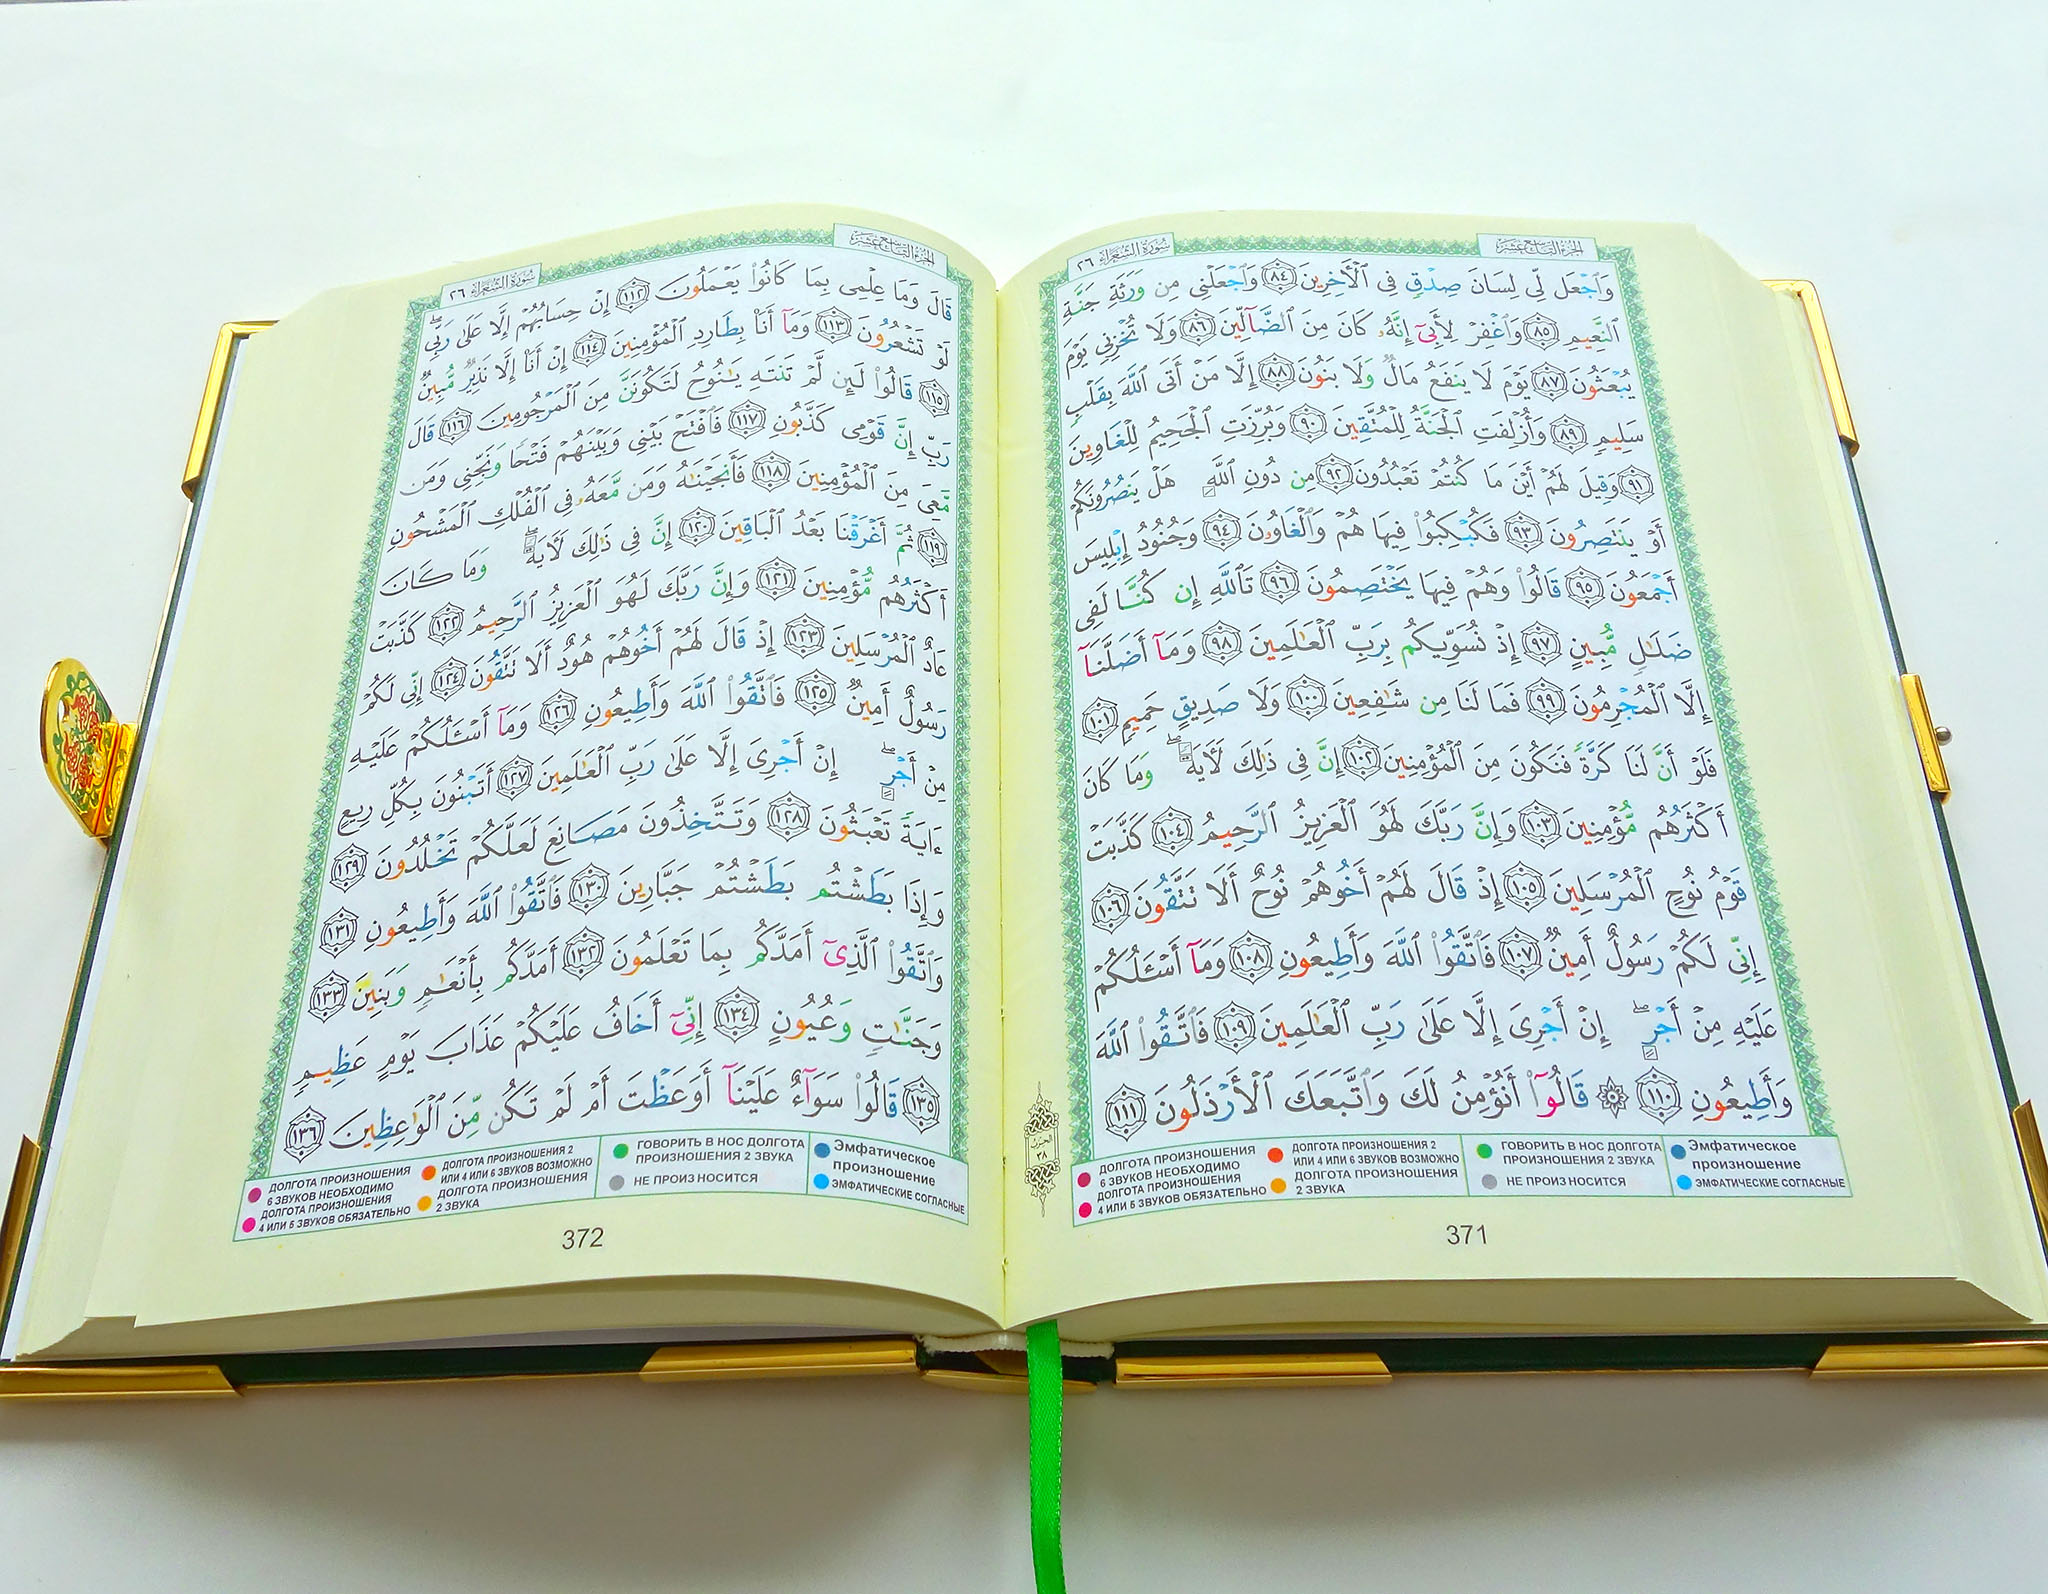 الجزء التاسع عشر
سورة الشعراء ٢٦
وَٱجْعَل لِّى لِسَانَ صِدْقٍ فِى ٱلْأَخِرِينَ ٨٤ وَٱجْعَلْنِى مِن وَرَثَةِ جَنَّةِ
ٱلنَّعِيمِ ٨٥ وَٱغْفِرْ لِأَبِىٓ إِنَّهُۥ كَانَ مِنَ ٱلضَّآلِّينَ ٨٦ وَلَا تُخْزِنِى يَوْمَ
يُبْعَثُونَ ٨٧ يَوْمَ لَا يَنفَعُ مَالٌ وَلَا بَنُونَ ٨٨ إِلَّا مَنْ أَتَى ٱللَّهَ بِقَلْبٍ
سَلِيمٍ ٨٩ وَأُزْلِفَتِ ٱلْجَنَّةُ لِلْمُتَّقِينَ ٩٠ وَبُرِّزَتِ ٱلْجَحِيمُ لِلْغَاوِينَ
٩١ وَقِيلَ لَهُمْ أَيْنَ مَا كُنتُمْ تَعْبُدُونَ ٩٢ مِن دُونِ ٱللَّهِ هَلْ يَنصُرُونَكُمْ
أَوْ يَنتَصِرُونَ ٩٣ فَكُبْكِبُوا۟ فِيهَا هُمْ وَٱلْغَاوُۥنَ ٩٤ وَجُنُودُ إِبْلِيسَ
أَجْمَعُونَ ٩٥ قَالُوا۟ وَهُمْ فِيهَا يَخْتَصِمُونَ ٩٦ تَٱللَّهِ إِن كُنَّا لَفِى
ضَلَٰلٍ مُّبِينٍ ٩٧ إِذْ نُسَوِّيكُم بِرَبِّ ٱلْعَٰلَمِينَ ٩٨ وَمَآ أَضَلَّنَآ
إِلَّا ٱلْمُجْرِمُونَ ٩٩ فَمَا لَنَا مِن شَٰفِعِينَ ١٠٠ وَلَا صَدِيقٍ حَمِيمٍ ١٠١
فَلَوْ أَنَّ لَنَا كَرَّةً فَنَكُونَ مِنَ ٱلْمُؤْمِنِينَ ١٠٢ إِنَّ فِى ذَٰلِكَ لَأَيَةً وَمَا كَانَ
أَكْثَرُهُم مُّؤْمِنِينَ ١٠٣ وَإِنَّ رَبَّكَ لَهُوَ ٱلْعَزِيزُ ٱلرَّحِيمُ ١٠٤ كَذَّبَتْ
قَوْمُ نُوحٍ ٱلْمُرْسَلِينَ ١٠٥ إِذْ قَالَ لَهُمْ أَخُوهُمْ نُوحٌ أَلَا تَتَّقُونَ ١٠٦
إِنِّى لَكُمْ رَسُولٌ أَمِينٌ ١٠٧ فَٱتَّقُوا۟ ٱللَّهَ وَأَطِيعُونِ ١٠٨ وَمَآ أَسْـَٔلُكُمْ
عَلَيْهِ مِنْ أَجْرٍ إِنْ أَجْرِىَ إِلَّا عَلَىٰ رَبِّ ٱلْعَٰلَمِينَ ١٠٩ فَٱتَّقُوا۟ ٱللَّهَ
وَأَطِيعُونِ ١١٠ ۞ قَالُوٓا۟ أَنُؤْمِنُ لَكَ وَٱتَّبَعَكَ ٱلْأَرْذَلُونَ ١١١
الحزب
٣٨
ДОЛГОТА ПРОИЗНОШЕНИЯ
6 ЗВУКОВ НЕОБХОДИМО
ДОЛГОТА ПРОИЗНОШЕНИЯ
4 ИЛИ 5 ЗВУКОВ ОБЯЗАТЕЛЬНО
ДОЛГОТА ПРОИЗНОШЕНИЯ 2
ИЛИ 4 ИЛИ 6 ЗВУКОВ ВОЗМОЖНО
ДОЛГОТА ПРОИЗНОШЕНИЯ
2 ЗВУКА
ГОВОРИТЬ В НОС ДОЛГОТА
ПРОИЗНОШЕНИЯ 2 ЗВУКА
НЕ ПРОИЗНОСИТСЯ
Эмфатическое
произношение
ЭМФАТИЧЕСКИЕ СОГЛАСНЫЕ
371
الجزء التاسع عشر
سورة الشعراء ٢٦
قَالَ وَمَا عِلْمِى بِمَا كَانُوا۟ يَعْمَلُونَ ١١٢ إِنْ حِسَابُهُمْ إِلَّا عَلَىٰ رَبِّى
لَوْ تَشْعُرُونَ ١١٣ وَمَآ أَنَا۠ بِطَارِدِ ٱلْمُؤْمِنِينَ ١١٤ إِنْ أَنَا۠ إِلَّا نَذِيرٌ مُّبِينٌ
١١٥ قَالُوا۟ لَئِن لَّمْ تَنتَهِ يَٰنُوحُ لَتَكُونَنَّ مِنَ ٱلْمَرْجُومِينَ ١١٦ قَالَ
رَبِّ إِنَّ قَوْمِى كَذَّبُونِ ١١٧ فَٱفْتَحْ بَيْنِى وَبَيْنَهُمْ فَتْحًا وَنَجِّنِى وَمَن
مَّعِىَ مِنَ ٱلْمُؤْمِنِينَ ١١٨ فَأَنجَيْنَٰهُ وَمَن مَّعَهُۥ فِى ٱلْفُلْكِ ٱلْمَشْحُونِ
١١٩ ثُمَّ أَغْرَقْنَا بَعْدُ ٱلْبَاقِينَ ١٢٠ إِنَّ فِى ذَٰلِكَ لَأَيَةً وَمَا كَانَ
أَكْثَرُهُم مُّؤْمِنِينَ ١٢١ وَإِنَّ رَبَّكَ لَهُوَ ٱلْعَزِيزُ ٱلرَّحِيمُ ١٢٢ كَذَّبَتْ
عَادٌ ٱلْمُرْسَلِينَ ١٢٣ إِذْ قَالَ لَهُمْ أَخُوهُمْ هُودٌ أَلَا تَتَّقُونَ ١٢٤ إِنِّى لَكُمْ
رَسُولٌ أَمِينٌ ١٢٥ فَٱتَّقُوا۟ ٱللَّهَ وَأَطِيعُونِ ١٢٦ وَمَآ أَسْـَٔلُكُمْ عَلَيْهِ
مِنْ أَجْرٍ إِنْ أَجْرِىَ إِلَّا عَلَىٰ رَبِّ ٱلْعَٰلَمِينَ ١٢٧ أَتَبْنُونَ بِكُلِّ رِيعٍ
ءَايَةً تَعْبَثُونَ ١٢٨ وَتَتَّخِذُونَ مَصَانِعَ لَعَلَّكُمْ تَخْلُدُونَ ١٢٩
وَإِذَا بَطَشْتُم بَطَشْتُمْ جَبَّارِينَ ١٣٠ فَٱتَّقُوا۟ ٱللَّهَ وَأَطِيعُونِ ١٣١
وَٱتَّقُوا۟ ٱلَّذِىٓ أَمَدَّكُم بِمَا تَعْلَمُونَ ١٣٢ أَمَدَّكُم بِأَنْعَٰمٍ وَبَنِينَ ١٣٣
وَجَنَّٰتٍ وَعُيُونٍ ١٣٤ إِنِّىٓ أَخَافُ عَلَيْكُمْ عَذَابَ يَوْمٍ عَظِيمٍ
١٣٥ قَالُوا۟ سَوَآءٌ عَلَيْنَآ أَوَعَظْتَ أَمْ لَمْ تَكُن مِّنَ ٱلْوَٰعِظِينَ ١٣٦
ДОЛГОТА ПРОИЗНОШЕНИЯ
6 ЗВУКОВ НЕОБХОДИМО
ДОЛГОТА ПРОИЗНОШЕНИЯ
4 ИЛИ 5 ЗВУКОВ ОБЯЗАТЕЛЬНО
ДОЛГОТА ПРОИЗНОШЕНИЯ 2
ИЛИ 4 ИЛИ 6 ЗВУКОВ ВОЗМОЖНО
ДОЛГОТА ПРОИЗНОШЕНИЯ
2 ЗВУКА
ГОВОРИТЬ В НОС ДОЛГОТА
ПРОИЗНОШЕНИЯ 2 ЗВУКА
НЕ ПРОИЗНОСИТСЯ
Эмфатическое
произношение
ЭМФАТИЧЕСКИЕ СОГЛАСНЫЕ
372